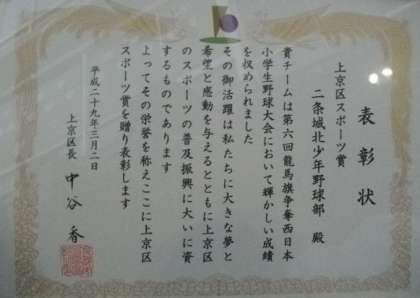 表彰状
上京区スポーツ賞
二条城北少年野球部 殿
貴チームは第六回龍馬旗争奪西日本
小学生野球大会において輝かしい成績
を収められました
その御活躍は私たちに大きな夢と
希望と感動を与えるとともに上京区
のスポーツの普及振興に大いに資
するものであります
よってその栄誉を称えここに上京区
スポーツ賞を贈り表彰します
平成二十九年三月二日
上京区長 中谷 香